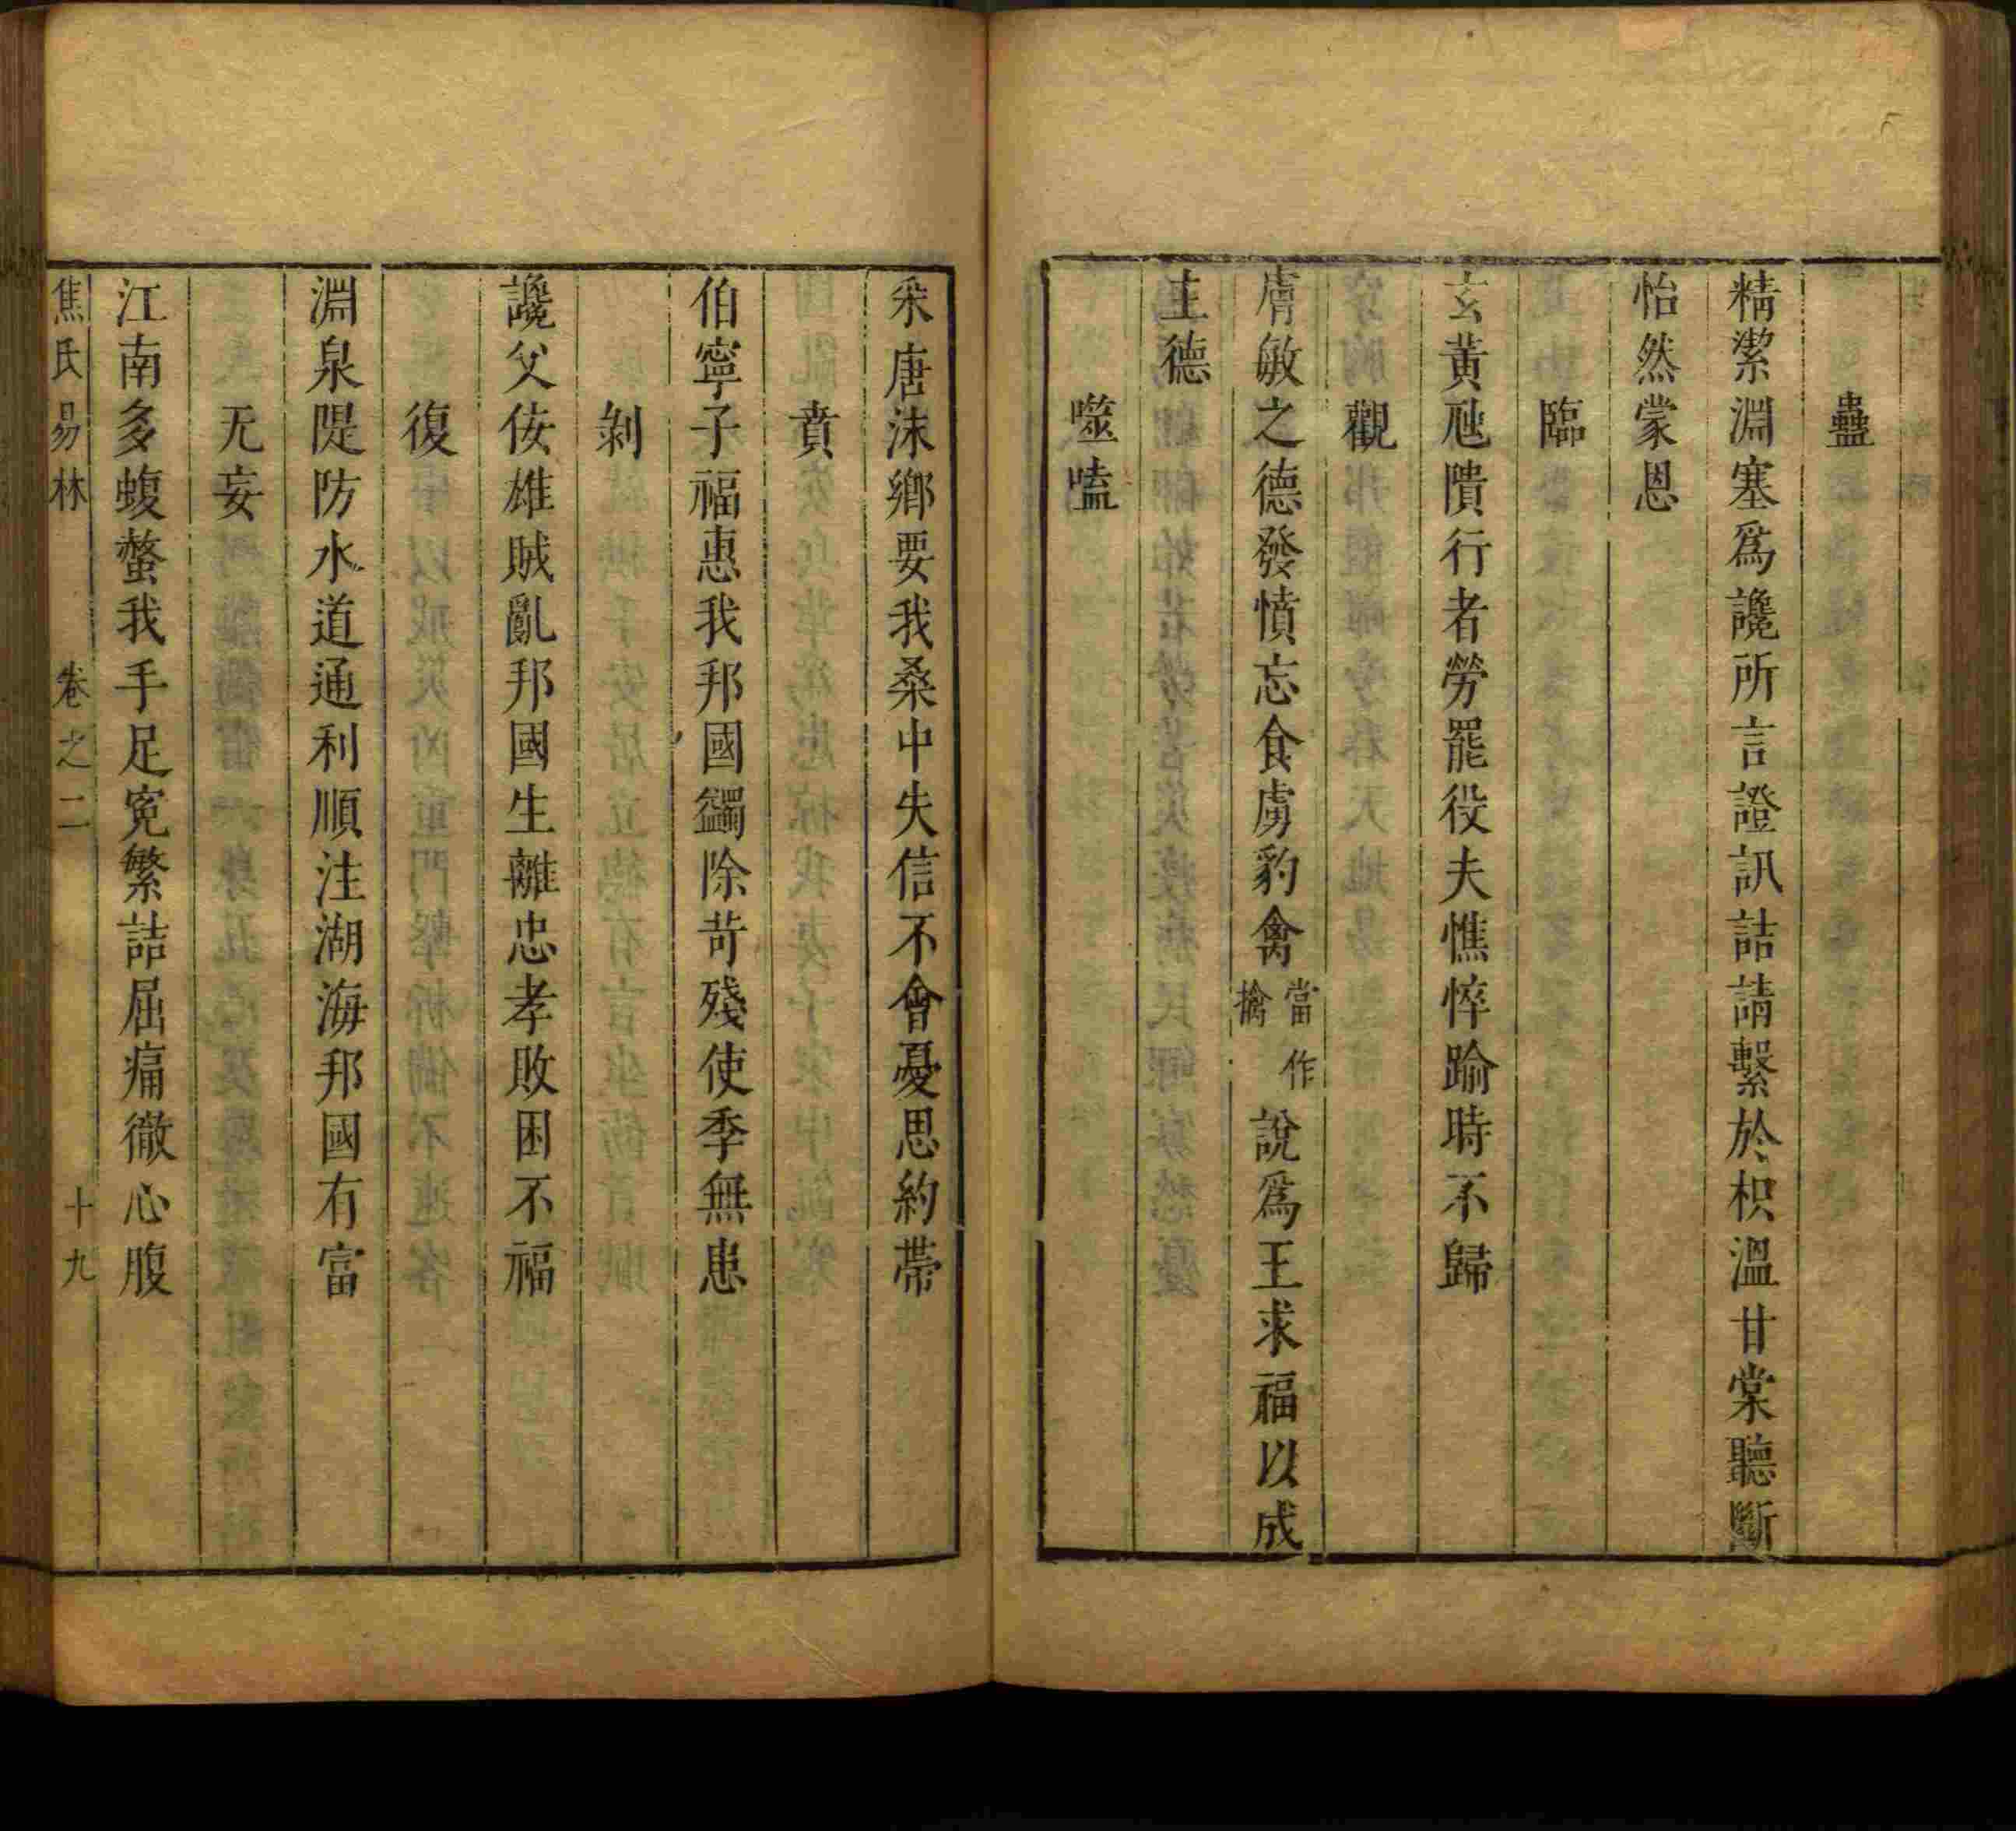 蠱
精潔淵塞爲讒所言證訊詰請繫於枳溫甘棠聽斷
怡然蒙恩
臨
玄黃虺隤行者勞罷役夫憔悴踰時不歸
觀
膚敏之德發憤忘食虜豹禽當作擒說爲王求福以成
主德
噬嗑
采唐沬鄉要我桑中失信不會憂思約帶
賁
伯寧子福惠我邦國蠲除苛殘使季無患
剝
讒父佞雄賊亂邦國生離忠孝敗困不福
復
淵泉隄防水道通利順注湖海邦國有富
无妄
江南多蝮螫我手足寃繁詰屈痛徹心腹
焦氏易林 卷之二 十九